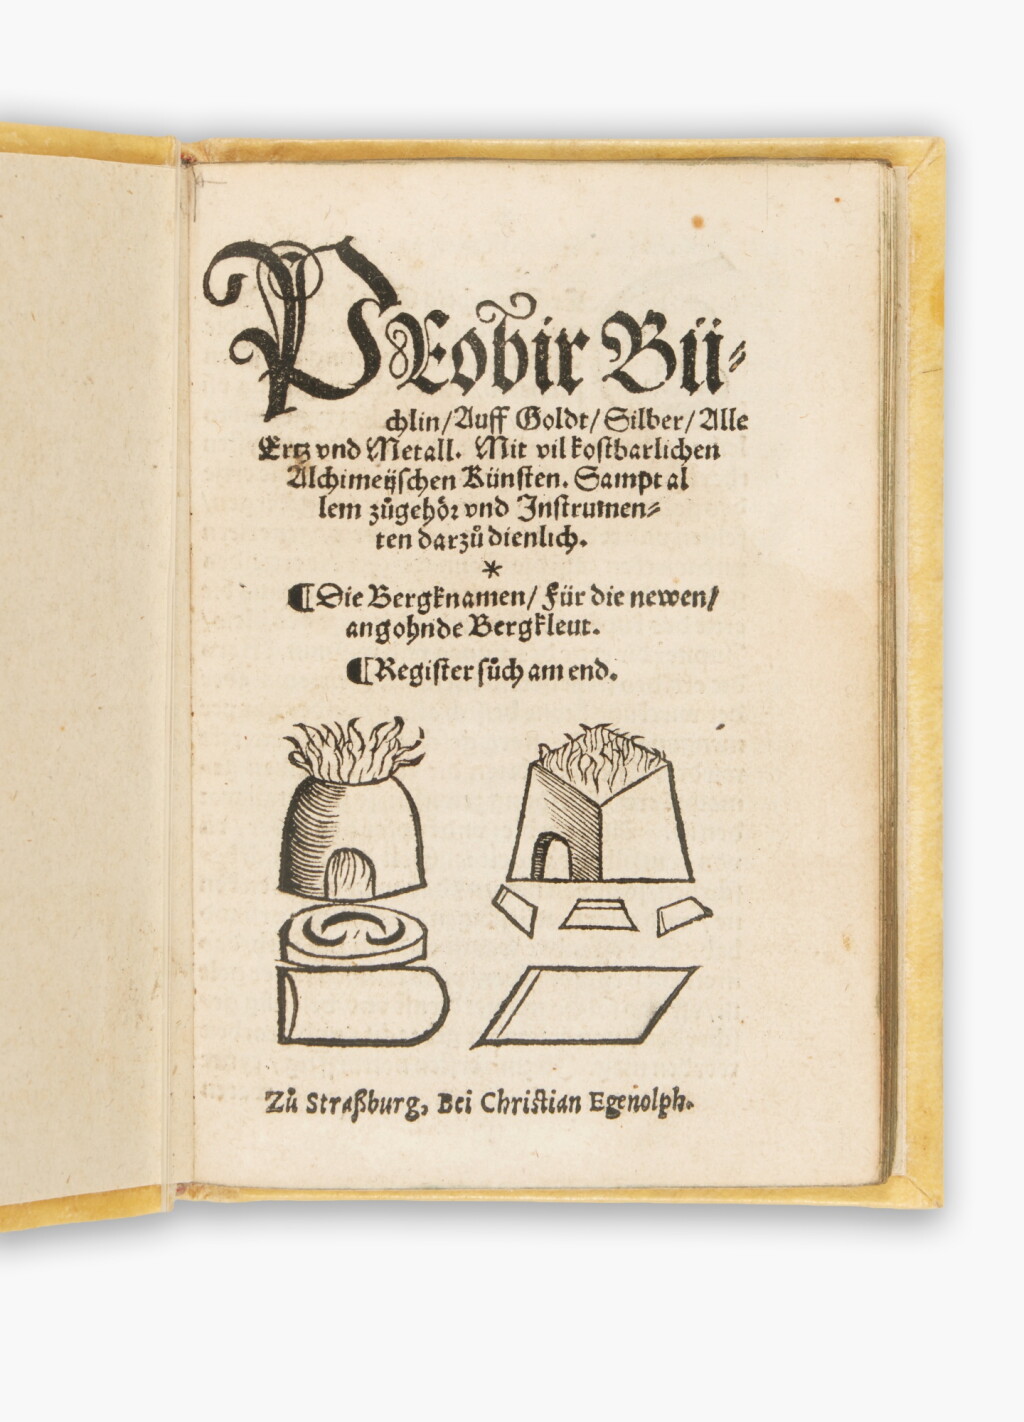 PRobir Bü⸗
chlin/Auff Goldt/Silber/Alle
Ertz vnd Metall. Mit vil kostbarlichen
Alchimeÿschen Künsten. Sampt al
lem zůgehör vnd Instrumen⸗
ten darzů dienlich.
*
¶Die Bergknamen/Für die newen/
angohnde Bergkleut.
¶Register sůch am end.
Zů Straßburg, Bei Christian Egenolph.